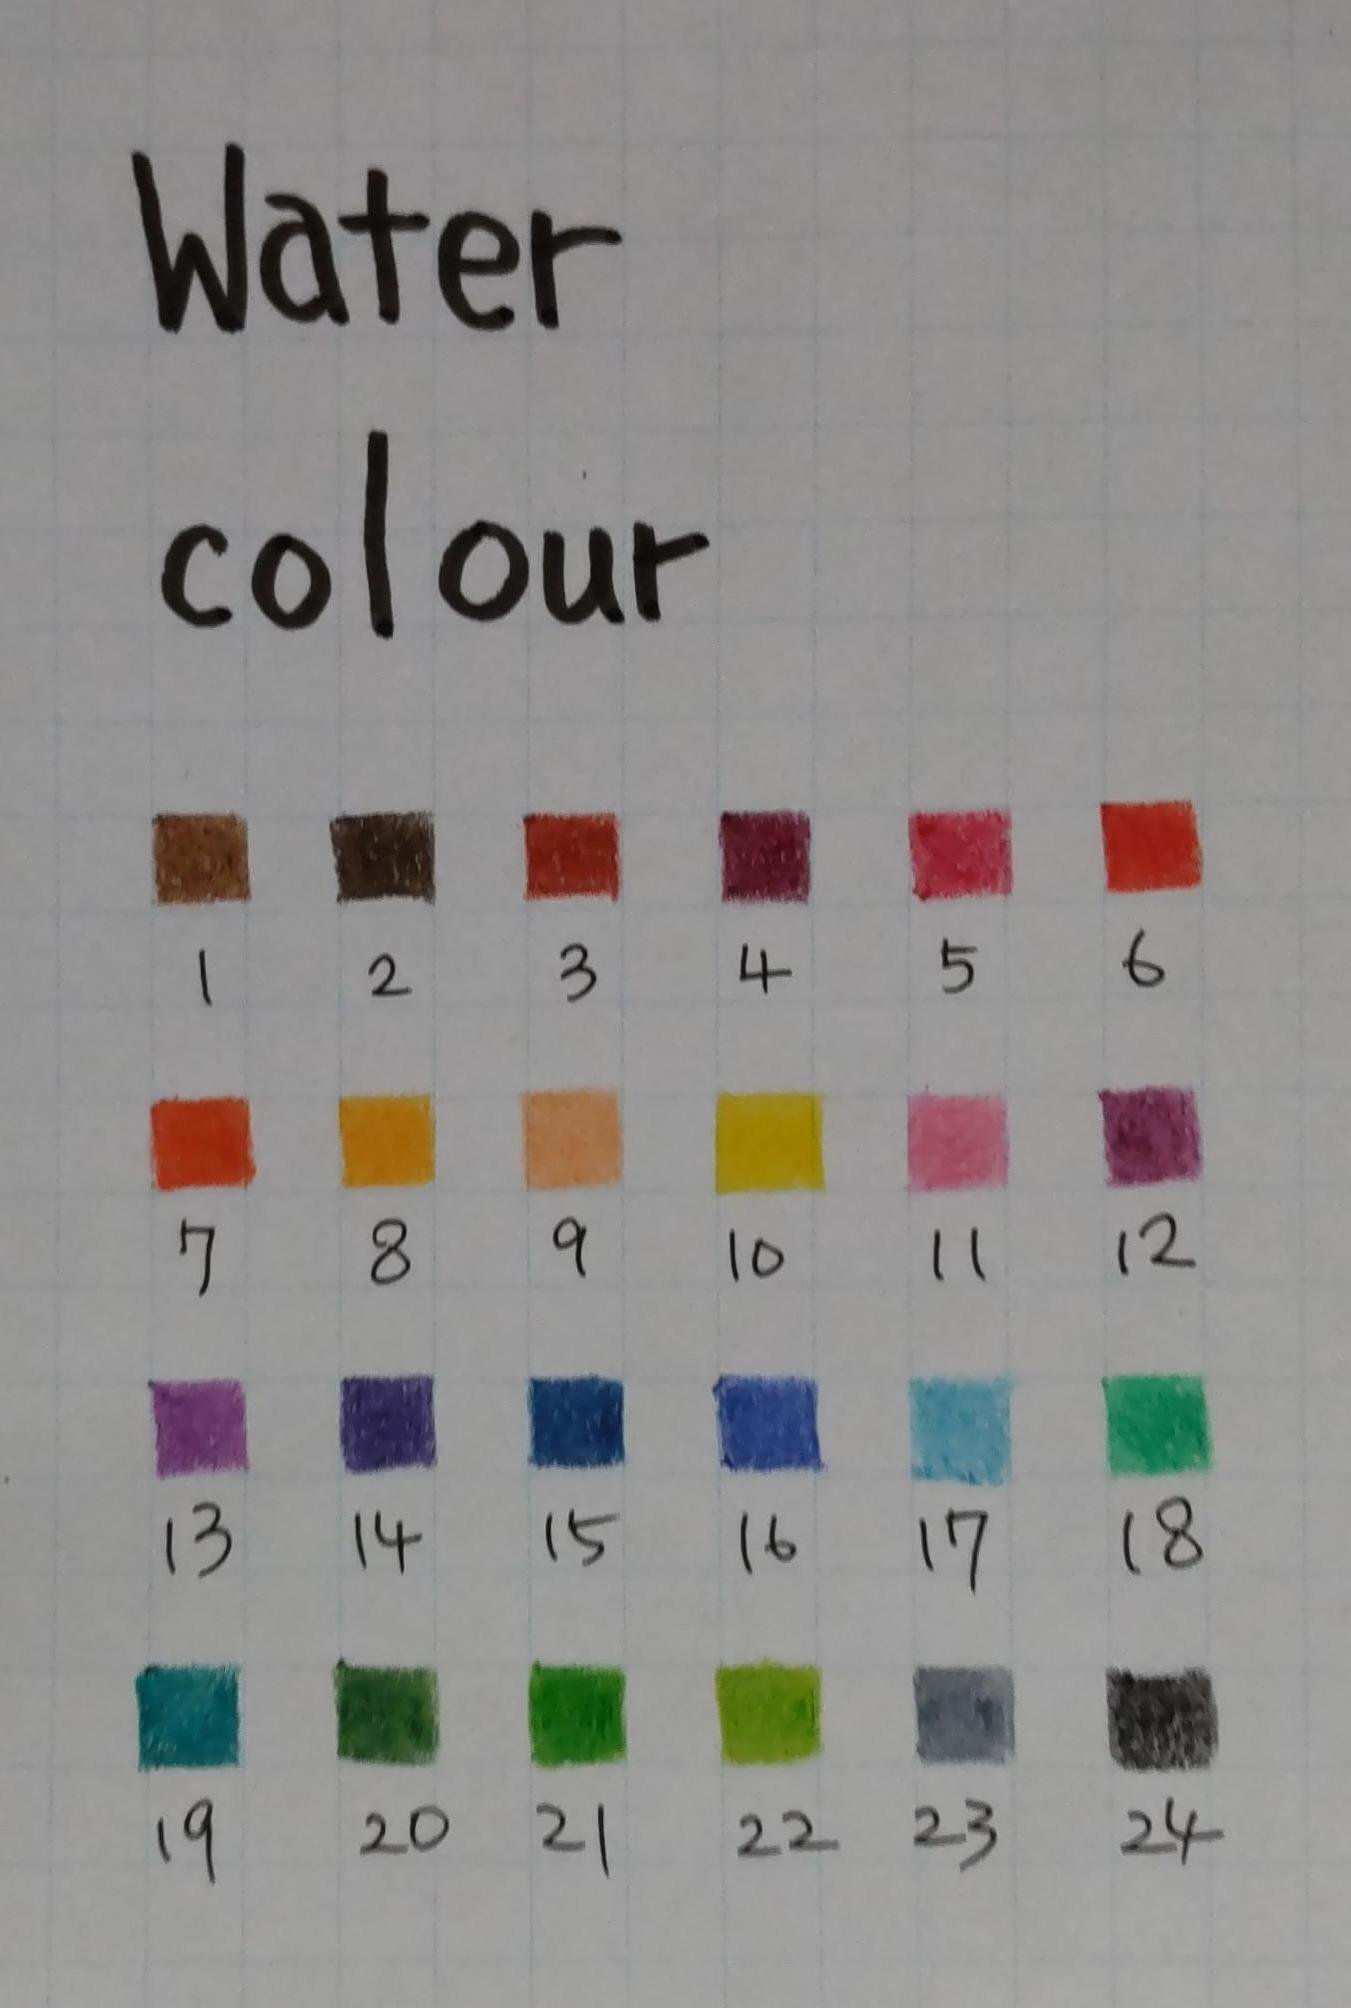 Water
colour
1 2 3 4 5 6
7 8 9 10 11 12
13 14 15 16 17 18
19 20 21 22 23 24